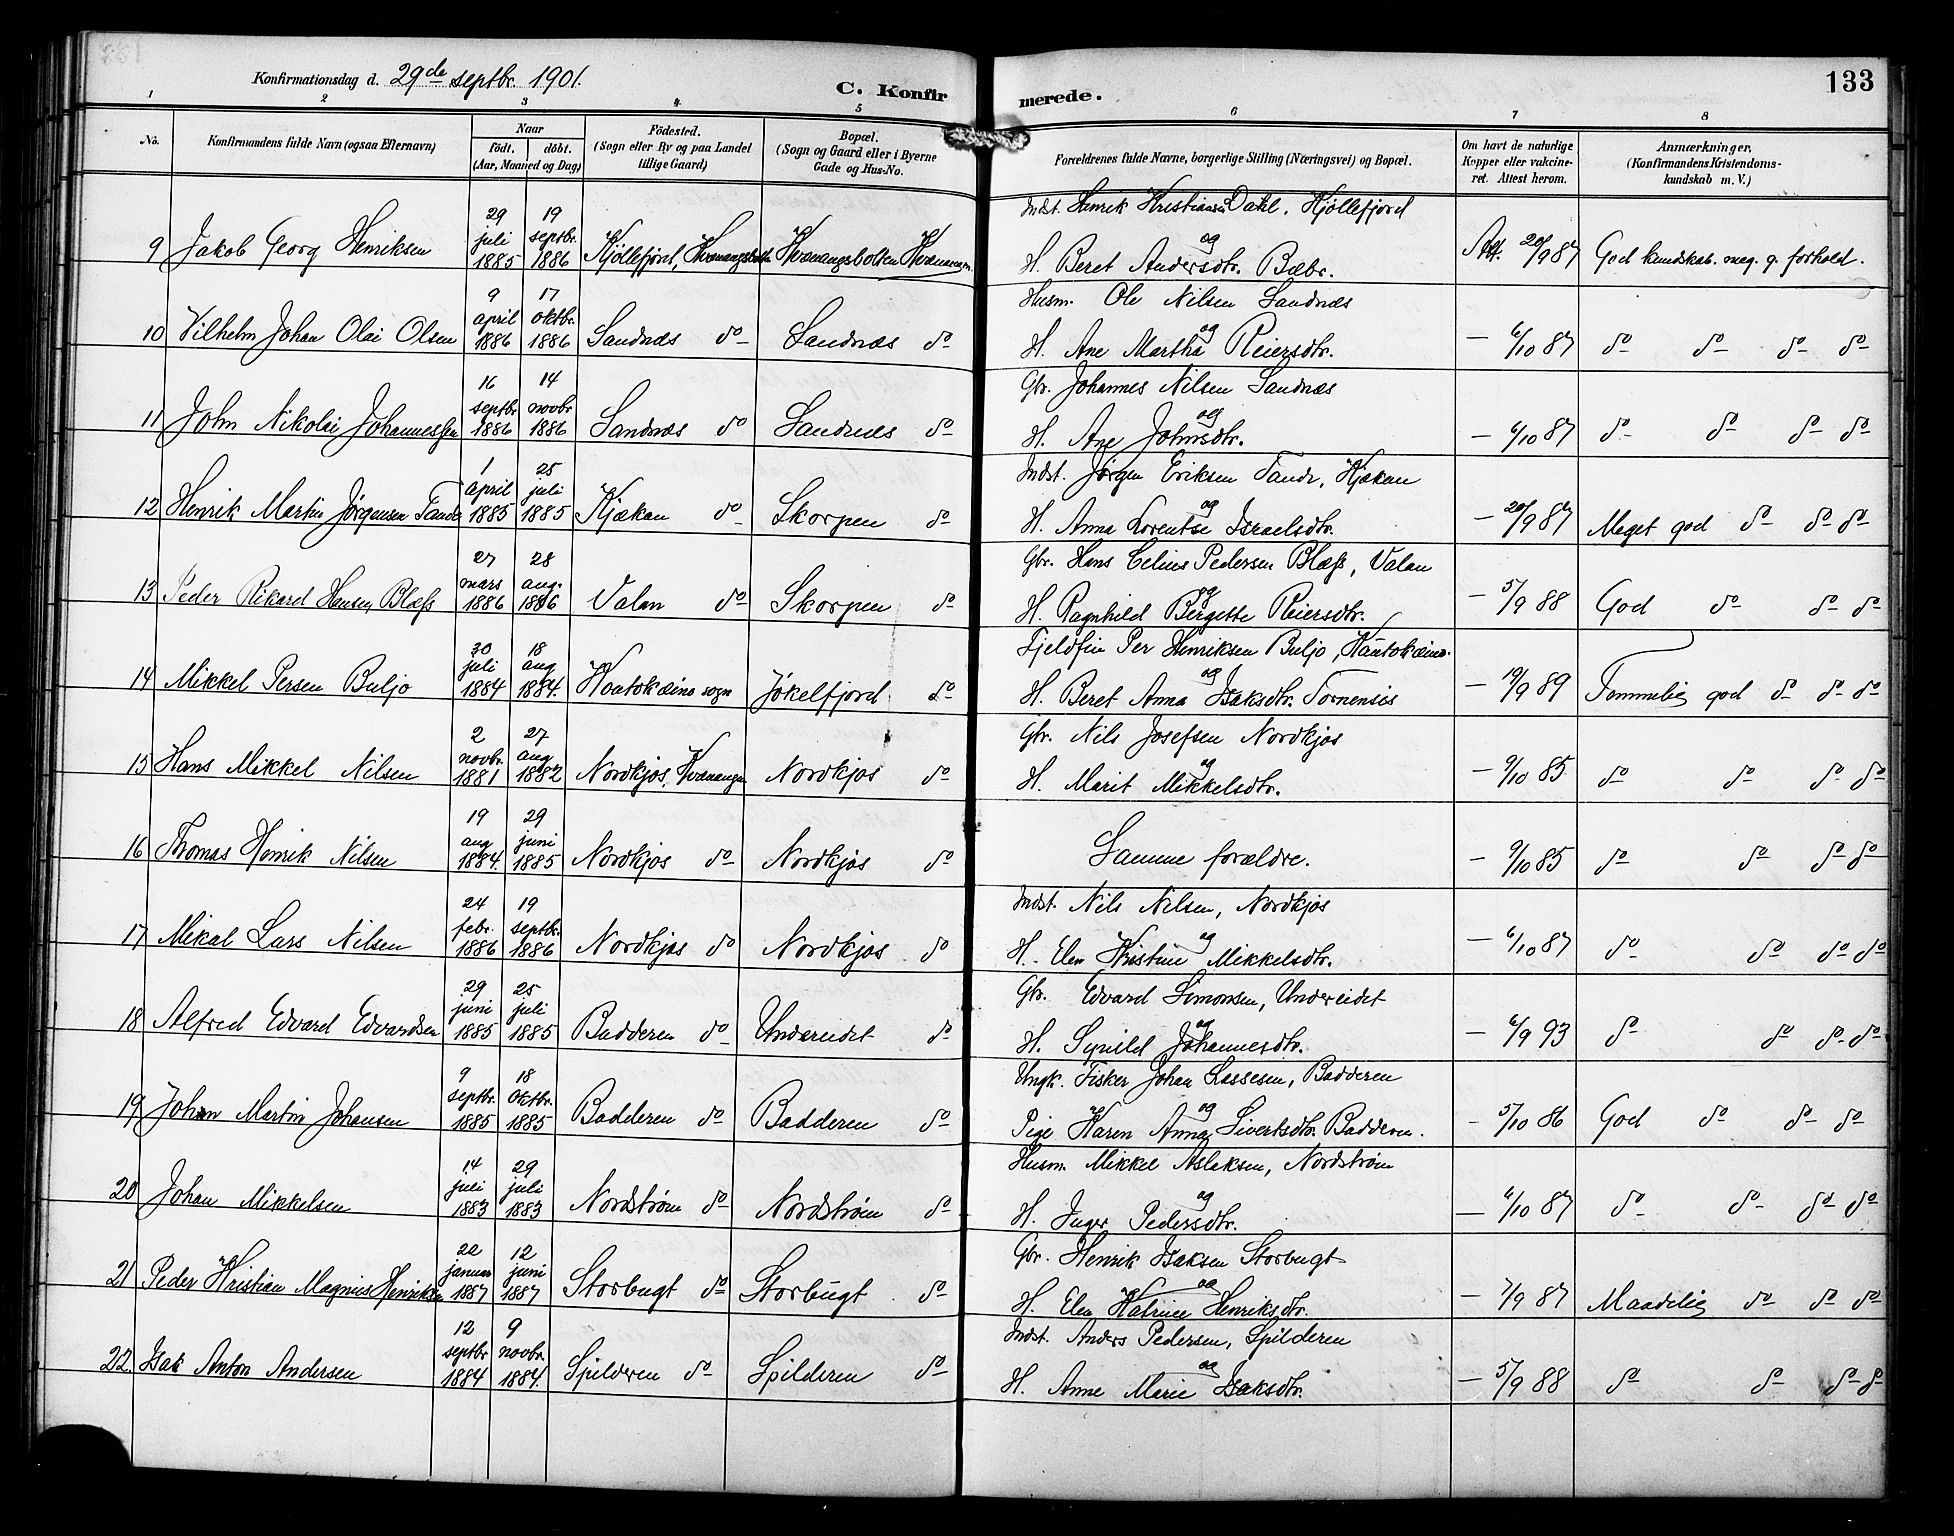 Konfirmationsdag d. 29de septbr. 1901.
C. Konfirmerede.
133
1 2 3 4 5 6 7 8
No. Konfirmandens fulde Navn (ogsaa Efternavn) Naar födt. döbt. (Aar, Maaned og Dag) Födested. (Sogn eller By og paa Landet tillige Gaard) Bopæl. (Sogn og Gaard eller i Byerne Gade og Hus-No. Forældrenes fulde Navne, borgerlige Stilling (Næringsvei) og Bopæl. Om havt de naturlige Kopper eller vakcineret. Attest herom. Anmærkninger. (Konfirmandens Kristendomskundskab m. V.)
9 Jakob Georg Henriksen 29 juli 1885 19 septbr. 1886 Kjöllefjord, Kvænangsbotn Kvænangsbotten Kvænangen Indst. Henrik Kristiansen Dahl, Kjöllefjord og H. Beret Andersdtr. Bæbr. Att. 20/9 87 God kundskab. meg. g. forhold.
10 Vilhelm Johan Olai Olsen 9 april 1886 17 oktbr. 1886 Sandnæs do Sandnæs do Husm. Ole Nilsen Sandnæs og H. Ane Martha Reiersdtr. — 6/10 87 do do do do
11 John Nikolai Johannessen 16 septbr 1886 14 novbr 1886 Sandnæs do Sandnæs do Gbr. Johannes Nilsen Sandnæs og H. Ane Johnsdtr. — 6/10 87 do do do do
12 Henrik Martin Jørgensen Tande 1 april 1885 25 juli 1885 Kjækan do Skorpen do Indst. Jørgen Eriksen Tande, Kjækan og H. Anna Lorentse Israelsdtr. — 20/9 87 Meget god do do do
13 Peder Rikard Hansen Blæss 27 mars 1886 28 aug. 1886 Valan do Skorpen do Gbr. Hans Celius Pedersen Blæss, Valan og H. Ragnhild Bergette Reiersdtr. — 5/9 88 God do do do
14 Mikkel Persen Buljo 30 juli 1884 18 aug 1884. Koutokæino sogn Jøkelfjord do Fjeldfin Per Henriksen Buljo, Kautokæino. og H. Beret Anna Isaksdtr. Tornensis — 19/9 89 Temmelig god do do do
15 Hans Mikkel Nilsen 2 novbr. 1881 27 aug 1882 Nordkjos, Kvænangen Nordkjos do Gbr. Nils Josefsen Nordkjos og H. Marit Mikkelsdtr. — 9/10 85 do do do do
16 Thomas Henrik Nilsen 19 aug 1884. 29 juni 1885 Nordkjos do Nordkjos do Samme forældre. — 9/10 85 do do do do
17 Mikal Lars Nilsen 24 febr. 1886 19 septbr. 1886 Nordkjos do Nordkjos do Indst. Nils Nilsen, Nordkjos og H. Elen Kristine Mikkelsdtr. — 6/10 87 do do do do
18 Alfred Edvard Edvardsen 29 juni 1885 25 juli 1885 Badderen do Undereidet do Gbr. Edvard Simonsen, Undereidet og H. Synild Johannesdtr. — 6/9 93 do do do do
19 Johan Martin Johansen 9 septbr. 1885 18 Oktbr. 1885 Badderen do Badderen do Ungk. Fisker Johan Lassesen, Badderen og Pige Karen Anna Sivertsdtr. Badderen. — 5/10 86 God do do do
20 Johan Mikkelsen 14 juli 1883 29 juli 1883 Nordstrøm do Nordstrøm do Husm. Mikkel Aslaksen, Nordstrøm og H. Inger Pedersdtr. — 6/10 87 do do do do
21 Peder Kristian Magnus Henriksen 22 januar 1887 12 juni 1887 Storbugt do Storbugt do Gbr. Henrik Isaksen Storbugt og H. Elen Katrine Henriksdtr. — 7/9 87 Maadelig do do do
22. Isak Anton Andersen 12 septbr 1884 9 novbr. 1884. Spilderen do Spilderen do Indst. Anders Pedersen, Spilderen og H. Anne Marie Isaksdtr. — 5/9 88 do do do do